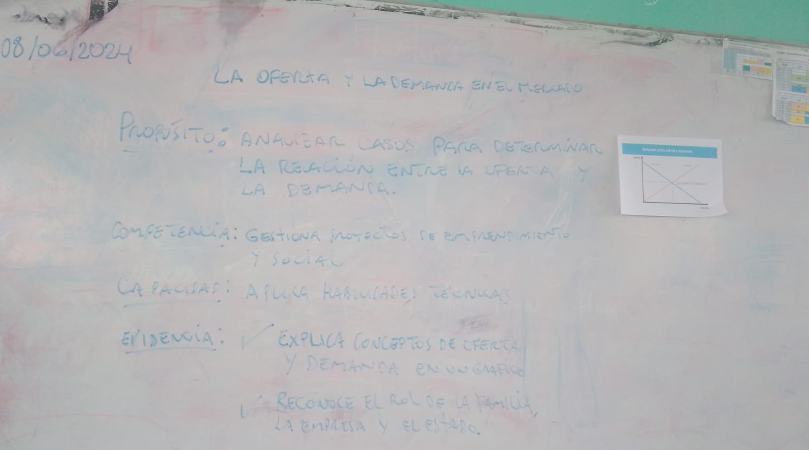 08/06/2024
LA OFERTA Y LA DEMANDA EN EL MERCADO
PROPÓSITO: ANALIZAR CASOS PARA DETERMINAR
LA RELACIÓN ENTRE LA OFERTA Y
LA DEMANDA.
COMPETENCIA: GESTIONA PROYECTOS DE EMPRENDIMIENTO
Y SOCIAL
CAPACIDAD: APLICA HABILIDADES TÉCNICAS
EVIDENCIA: ✓ EXPLICA CONCEPTOS DE OFERTA
Y DEMANDA EN UN GRÁFICO
✓ RECONOCE EL ROL DE LA FAMILIA,
LA EMPRESA Y EL ESTADO.